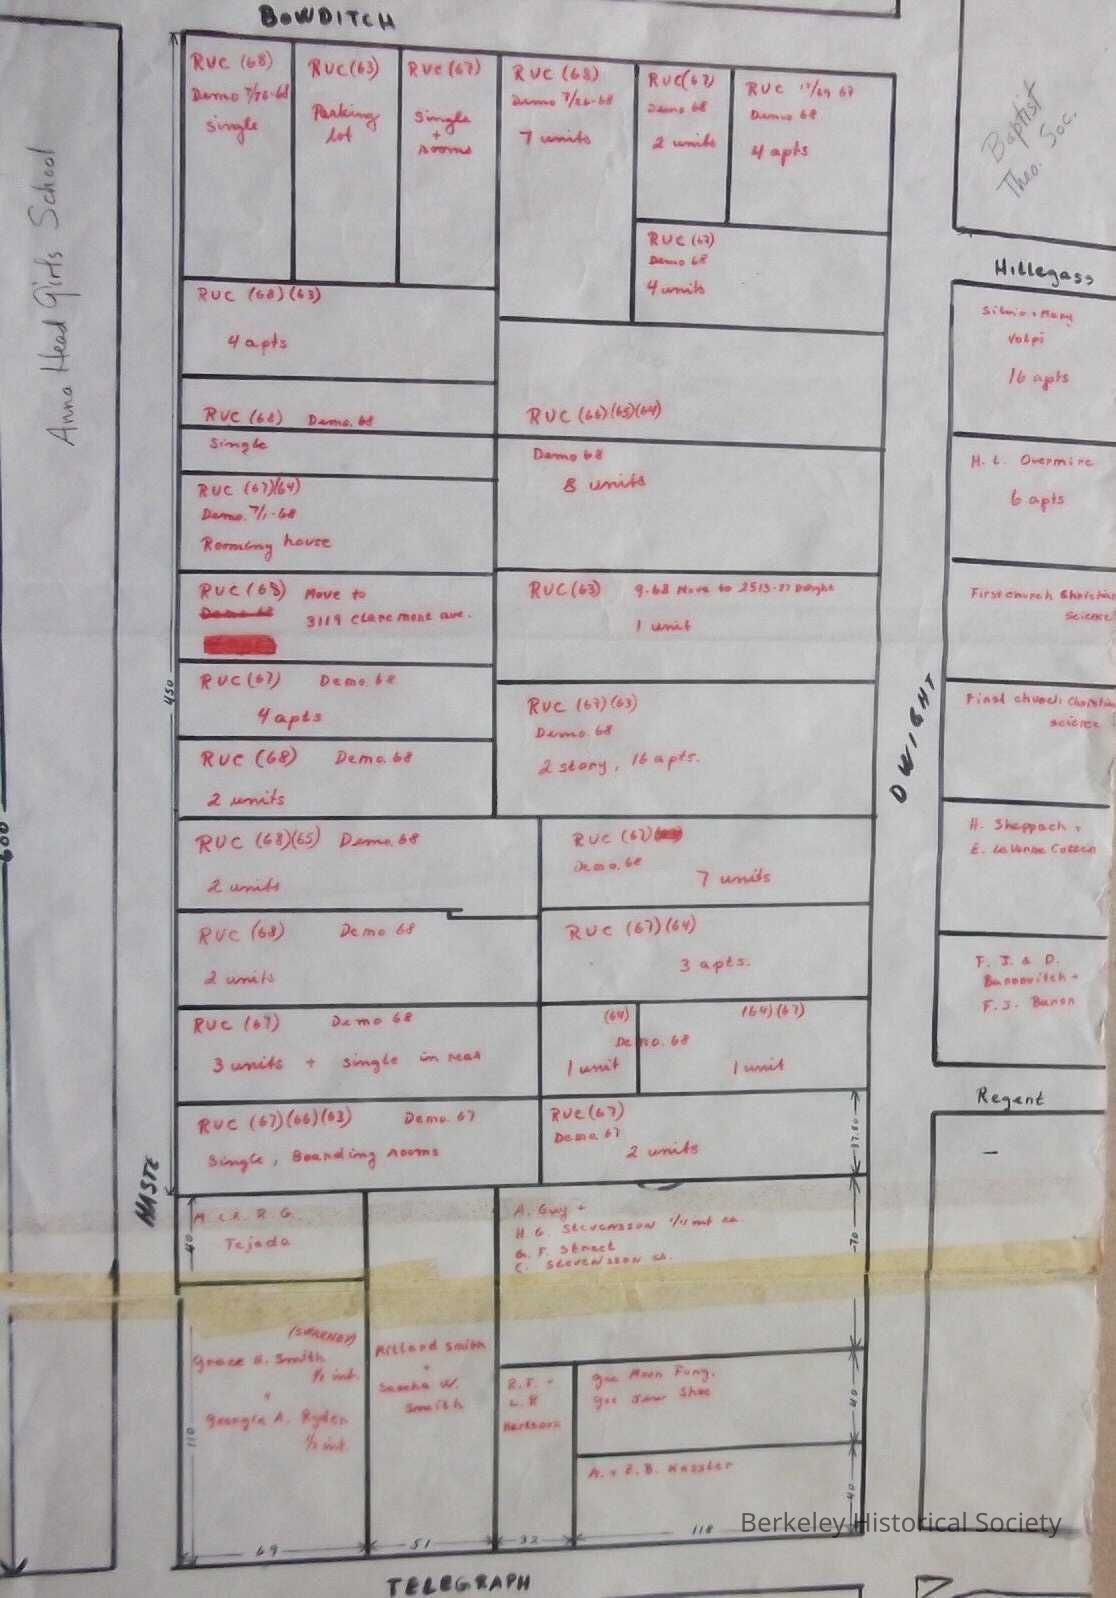 BOWDITCH
Anna Head Girls School
RUC (68)
Demo 7/26-68
single
RUC (63)
Parking
lot
RUC (67)
Single
+
rooms
RUC (68)
Demo 7/26-68
7 units
RUC (67)
Demo 68
2 units
RUC 67
Demo 68
4 apts
RUC (67)
Demo 68
4 units
Baptist
Theo. Soc.
Hillegass
RUC (68)(63)
4 apts
RUC (68) Demo. 68
Single
RUC (66)(65)(64)
Demo 68
8 units
RUC (67)(64)
Demo. 7/1-68
Rooming house
RUC (68) Move to
Demo 68
3119 Claremont ave.
RUC (63) 9-68 Move to 2513-27 Dwight
1 unit
RUC (67) Demo. 68
4 apts
RUC (68) Demo. 68
2 units
RUC (67)(63)
Demo. 68
2 story, 16 apts.
RUC (68)(65) Demo. 68
2 units
RUC (67)
Demo. 68
7 units
RUC (68) Demo 68
2 units
RUC (67)(64)
3 apts.
RUC (67) Demo 68
3 units + single in rear
(64) (64)(67)
Demo. 68
1 unit 1 unit
RUC (67)(66)(63) Demo. 67
Single, Boarding rooms
RUC (67)
Demo. 67
2 units
Silvio + Mary
Volpi
16 apts
H. L. Overmire
6 apts
First church Christian
science
First church Christian
science
H. Sheppach +
E. LaVonne
F. J. & D.
Banovitch +
F. J. Banon
Regent
DWIGHT
HASTE
450
600
37.50
R. G.
Tejada
40
A. Guy +
H. G. STEVENSSON
G. F. Street
C. STEVENSSON
70
Grace H. Smith
1/2 int.
Georgia A. Ryder
1/2 int.
110
Millard Smith
+
Sascha W.
Smith
R. F. +
L. R
Gee Moon Fung,
Gee Jew Shee
40
A. + E. B. Kessler
40
69
51
32
118
TELEGRAPH
Berkeley Historical Society